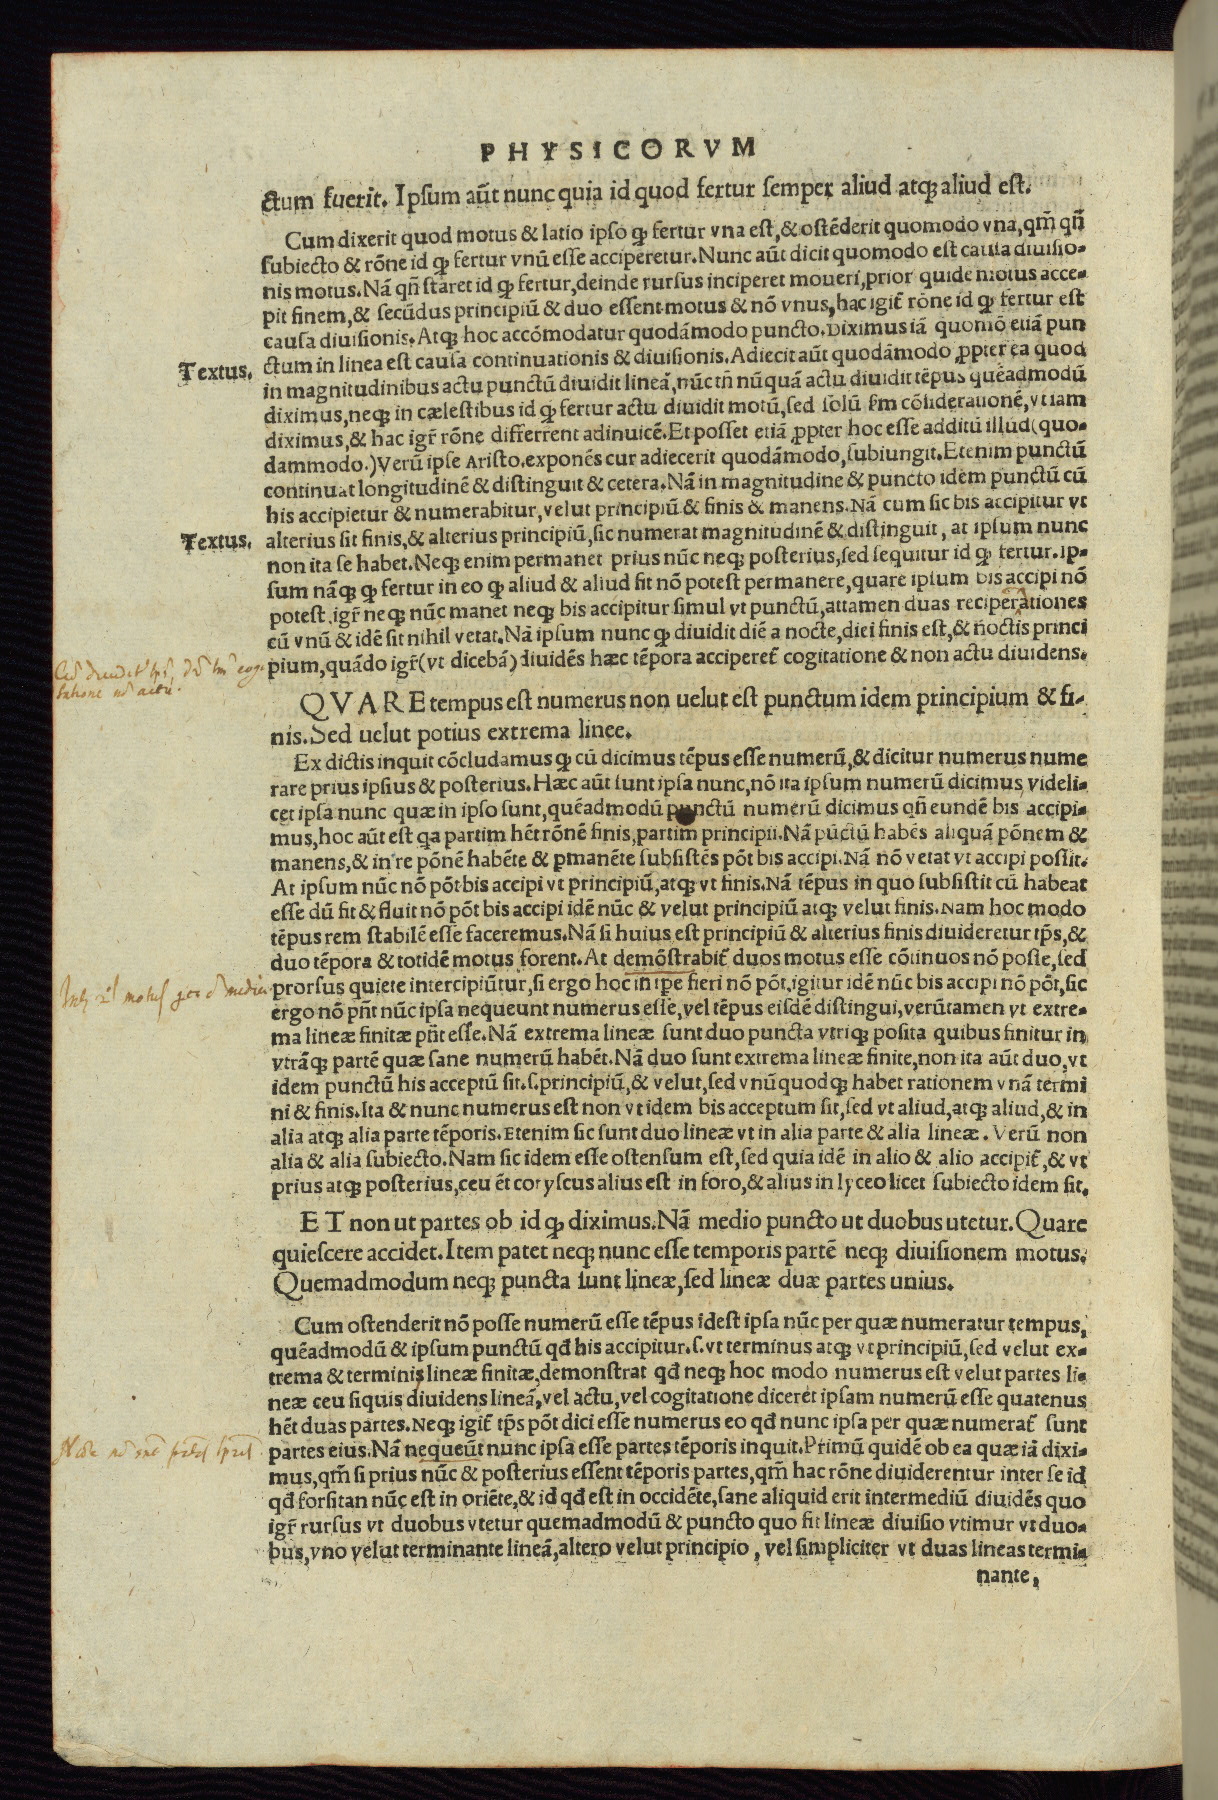 PHYSICORVM
ctum fuerit. Ipsum aūt nunc quia id quod fertur semper aliud atqꝫ aliud est.
Cum dixerit quod motus & latio ipso qꝫ fertur vna est, & ostēderit quomodo vna, qm̄ qn̄
subiecto & rōne id qꝫ fertur vnū esse acciperetur. Nunc aūt dicit quomodo est causa diuisio-
nis motus. Nā qn̄ staret id qꝫ fertur, deinde rursus inciperet moueri, prior quidē motus acce-
pit finem, & secūdus principiū & duo essent motus & nō vnus, hac igiť rōne id qꝫ fertur est
causa diuisionis. Atqꝫ hoc accōmodatur quodāmodo puncto. Diximus iā quomō etiā pun
Textus.
ctum in linea est causa continuationis & diuisionis. Adiecit aūt quodāmodo ꝓpter ea quod
in magnitudinibus actu punctū diuidit lineā, nūc tn̄ nūquā actu diuidit tēpus quēadmodū
diximus, neqꝫ in cælestibus id qꝫ fertur actu diuidit motū, sed solū fm cōsiderationē, vt iam
diximus, & hac igr̄ rōne differrent adinuicē. Et posset etiā ꝓpter hoc esse additū illud (quo-
dammodo.) Verū ipse Aristo. exponēs cur adiecerit quodāmodo, subiungit. Etenim punctū
continuat longitudinē & distinguit & cetera. Nā in magnitudine & puncto idem punctū cū
his accipietur & numerabitur, velut principiū & finis & manens. Nā cum sic bis accipitur vt
Textus.
alterius sit finis, & alterius principiū, sic numerat magnitudinē & distinguit, at ipsum nunc
non ita se habet. Neqꝫ enim permanet prius nūc neqꝫ posterius, sed sequitur id qꝫ fertur. Ip-
sum nāqꝫ qꝫ fertur in eo qꝫ aliud & aliud sit nō potest permanere, quare ipsum bis accipi nō
potest. igr̄ neqꝫ nūc manet neqꝫ bis accipitur simul vt punctū, attamen duas reciperationes
cū vnū & idē sit nihil vetat. Nā ipsum nunc qꝫ diuidit diē a nocte, diei finis est, & noctis princi
pium, quādo igr̄ (vt dicebā) diuidēs hæc tēpora acciperet̄ cogitatione & non actu diuidens.
QVARE tempus est numerus non uelut est punctum idem principium & fi-
nis. Sed uelut potius extrema linee.
Ex dictis inquit cōcludamus qꝫ cū dicimus tēpus esse numerū, & dicitur numerus nume
rare prius ipsius & posterius. Hæc aūt sunt ipsa nunc, nō ita ipsum numerū dicimus videli-
cet ipsa nunc quæ in ipso sunt, quēadmodū punctū numerū dicimus qn̄ eundē bis accipi-
mus, hoc aūt est qa partim hēt rōnē finis, partim principii. Nā pūctū habēs aliquā pōnem &
manens, & in re pōnē habēte & pmanēte subsistēs pōt bis accipi. Nā nō vetat vt accipi possit.
At ipsum nūc nō pōt bis accipi vt principiū, atqꝫ vt finis. Nā tēpus in quo subsistit cū habeat
esse dū fit & fluit nō pōt bis accipi idē nūc & velut principiū atqꝫ velut finis. Nam hoc modo
tēpus rem stabilē esse faceremus. Nā si huius est principiū & alterius finis diuideretur tp̄s, &
duo tēpora & totidē motus forent. At demōstrabit̄ duos motus esse cōtinuos nō posse, sed
prorsus quiete intercipiūtur, si ergo hoc in tp̄e fieri nō pōt, igitur idē nūc bis accipi nō pōt, sic
ergo nō pn̄t nūc ipsa nequeunt numerus esse, vel tēpus eisdē distingui, verūtamen vt extre-
ma lineæ finitæ pn̄t esse. Nā extrema lineæ sunt duo puncta vtriqꝫ posita quibus finitur in
vtrāqꝫ partē quæ sane numerū habēt. Nā duo sunt extrema lineæ finite, non ita aūt duo, vt
idem punctū his acceptū sit. s. principiū, & velut, sed vnūquodqꝫ habet rationem vnā termi
ni & finis. Ita & nunc numerus est non vt idem bis acceptum sit, sed vt aliud, atqꝫ aliud, & in
alia atqꝫ alia parte tēporis. Etenim sic sunt duo lineæ vt in alia parte & alia lineæ. Verū non
alia & alia subiecto. Nam sic idem esse ostensum est, sed quia idē in alio & alio accipit̄, & vt
prius atqꝫ posterius, ceu ēt coryscus alius est in foro, & alius in lyceo licet subiecto idem sit.
ET non ut partes ob id qꝫ diximus. Nā medio puncto ut duobus utetur. Quare
quiescere accidet. Item patet neqꝫ nunc esse temporis partē neqꝫ diuisionem motus.
Quemadmodum neqꝫ puncta sunt lineæ, sed lineæ duæ partes unius.
Cum ostenderit nō posse numerū esse tēpus idest ipsa nūc per quæ numeratur tempus,
quēadmodū & ipsum punctū qđ his accipitur. s. vt terminus atqꝫ vt principiū, sed velut ex-
trema & terminis lineæ finitæ, demonstrat qđ neqꝫ hoc modo numerus est velut partes li-
neæ ceu siquis diuidens lineā, vel actu, vel cogitatione diceret ipsam numerū esse quatenus
hēt duas partes. Neqꝫ igit̄ tp̄s pōt dici esse numerus eo qđ nunc ipsa per quæ numerat̄ sunt
partes eius. Nā nequeūt nunc ipsa esse partes tēporis inquit. Primū quidē ob ea quæ iā dixi-
mus, qm̄ si prius nūc & posterius essent tēporis partes, qm̄ hac rōne diuiderentur inter se id
qđ forsitan nūc est in oriēte, & id qđ est in occidēte, sane aliquid erit intermediū diuidēs quo
igr̄ rursus vt duobus vtetur quemadmodū & puncto quo fit lineæ diuisio vtimur vt duo-
bus, vno velut terminante lineā, altero velut principio, vel simpliciter vt duas lineas termi-
nante,